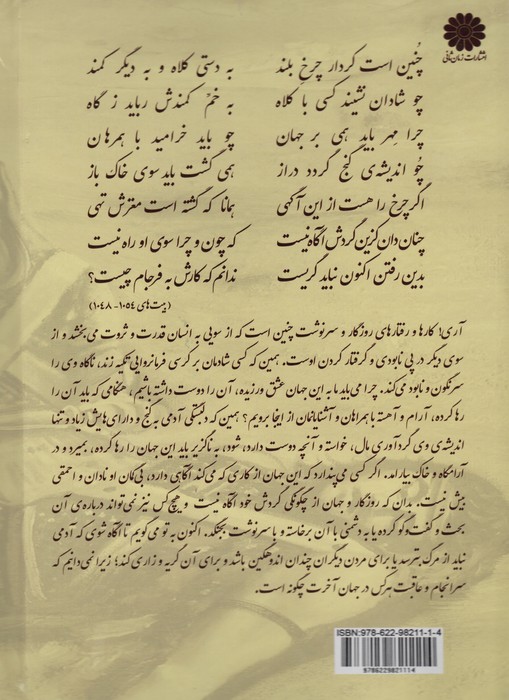 انتشارات زمان‌ثانی
چُنین است کردار چرخ بلند به دستی کلاه و به دیگر کمند
چو شادان نشیند کسی با کلاه به خمّ کمندش رباید ز گاه
چرا مِهر باید همی بر جهان چو باید خرامید با همرهان
چُو اندیشه‌ی گنج گردد دراز همی گشت باید سوی خاک باز
اگر چرخ را هست از این آگهی همانا که گشته است مغزش تهی
چنان دان کزین گردش آگاه نیست که چون و چرا سوی او راه نیست
بدین رفتن اکنون نباید گریست ندانم که کارش به فرجام چیست؟
(بیت‌های ۱۰۵۴- ۱۰۴۸)
آری؛ کارها و رفتارهای روزگار و سرنوشت چنین است که از سویی به انسان قدرت و ثروت می‌بخشد و از
سوی دیگر در پی نابودی و گرفتار کردن اوست. همین که کسی شادمان بر کرسی فرمانروایی تکیه زند، ناگاه وی را
سرنگون و نابود می‌کند. چرا می‌باید ما به این جهان عشق ورزیده، آن را دوست داشته باشیم، هنگامی که باید آن را
رها کرده، آرام و آهسته با همراهان و آشنایانمان از اینجا برویم؟ همین که دلبستگی آدمی به گنج و دارایی‌هایش زیاد و تنها
اندیشه‌ی وی گردآوری مال، خواسته و آنچه دوست دارد، شود، به ناگزیر باید این جهان را رها کرده، بمیرد و در
آرامگاه و خاک بیارامد. اگر کسی می‌پندارد که این جهان از کاری که می‌کند آگاهی دارد، بی‌گمان او نادان و احمقی
بیش نیست، بدان که روزگار و جهان از چگونگی گردش خود آگاه نیست و هیچ‌کس نیز نمی‌تواند درباره‌ی آن
بحث و گفت‌وگو کرده یا به دشمنی با آن برخاسته و با سرنوشت بجنگد. اکنون به تو می‌گویم تا آگاه شوی که آدمی
نباید از مرگ بترسد یا برای مردن دیگران چندان اندوهگین باشد و برای آن گریه و زاری کند؛ زیرا نمی‌دانیم که
سرانجام و عاقبت هرکس در جهان آخرت چگونه است.
ISBN:978-622-98211-1-4
9786229821114